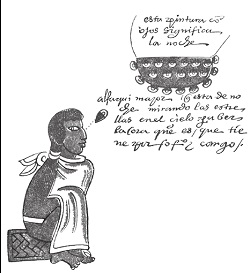 esta pintura cō
ojos significa
la noche
alfaqui mayor q̃ esta de no
che mirando las estre
llas en el cielo ver
la ora q̃ es que tie
ne por ofo